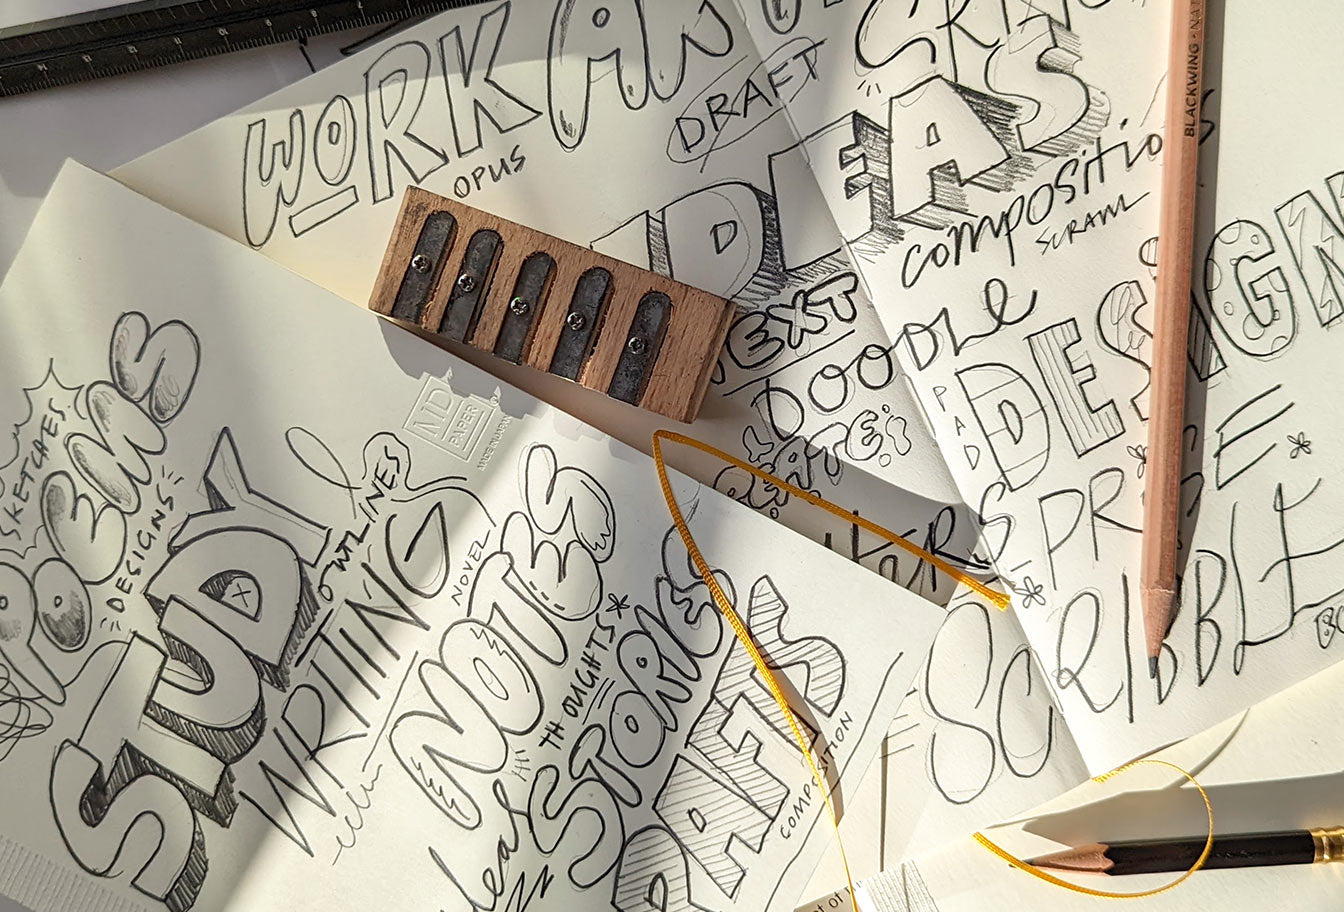 WORK
OPUS
DRAFT
IDEAS
composition
SCRAWL
TEXT
DOODLE
PAD
DESIGN
SCRIBBLE
BLACKWING
SKETCHES
POEMS
DESIGNS
STUDY
OUTLINES
WRITING
ND
PAPER
NOVEL
NOTES
THOUGHTS
STORIES
DRAFTS
COMPOSITION
Ideas